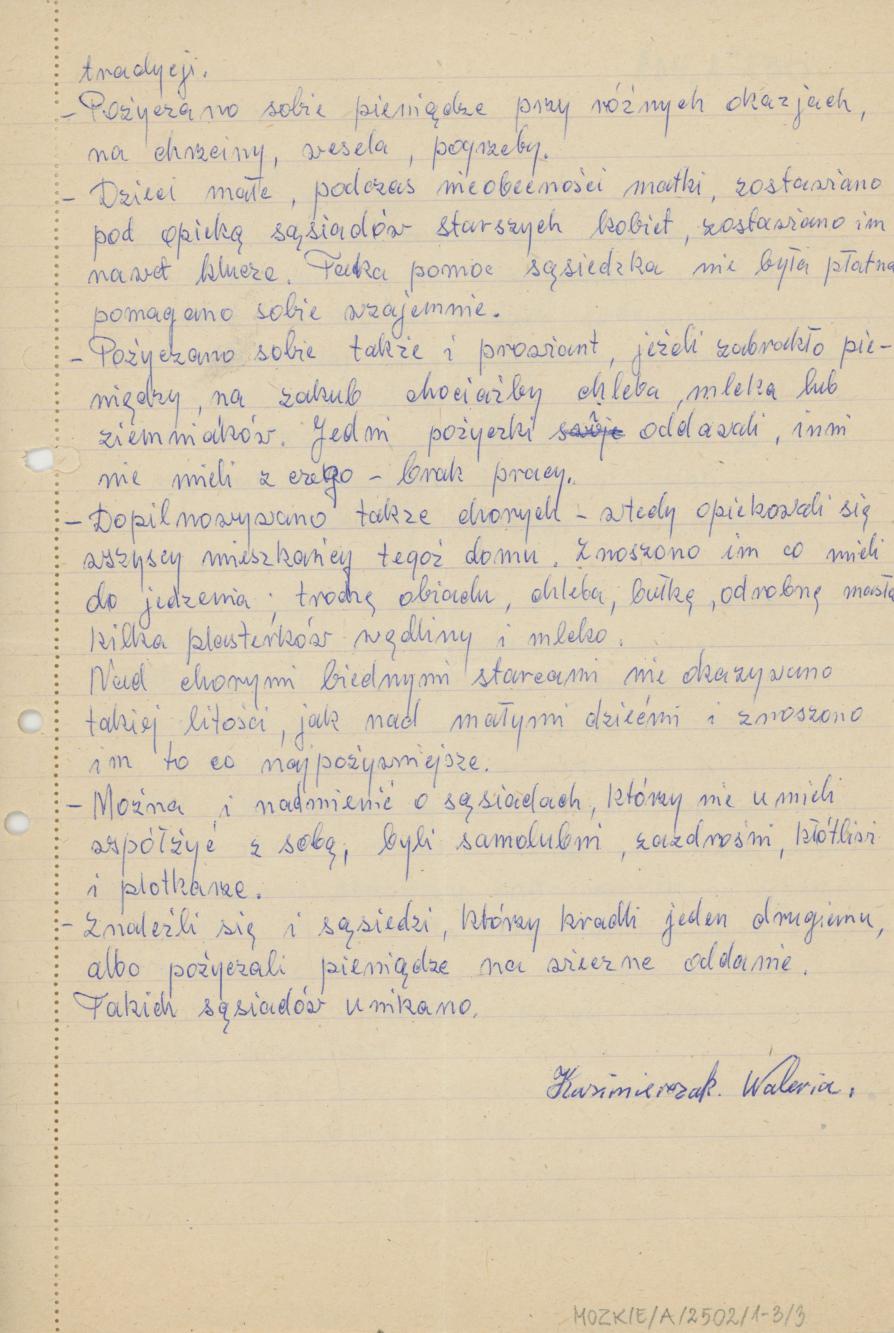 tradycji.
- Pożyczano sobie pieniądze przy różnych okazjach,
na chrzciny, wesela, pogrzeby.
- Dzieci małe, podczas nieobecności matki, zostawiano
pod opieką sąsiadów starszych kobiet, zostawiano im
nawet klucze. Taka pomoc sąsiedzka nie była płatna
pomagano sobie wzajemnie.
- Pożyczano sobie także i prowiant, jeżeli zabrakło pie-
niędzy, na zakub chociażby chleba, mleka lub
ziemniaków. Jedni pożyczki swoje oddawali, inni
nie mieli z czego - brak pracy.
- Dopilnowywano także chorych - wtedy opiekowali się
wszyscy mieszkańcy tegoż domu. Znoszono im co mieli
do jedzenia; trochę obiadu, chleba, bułkę, odrobnę masła
kilka plasterków wędliny i mleko.
Nad chorymi biednymi starcami nie okazywano
takiej litości, jak nad małymi dziećmi i znoszono
im to co najpożywniejsze.
- Można i nadmienić o sąsiadach, którzy nie umieli
współżyć z sobą, byli samolubni, zazdrośni, kłótliwi
i plotkarze.
- Znaleźli się i sąsiedzi, którzy kradli jeden drugiemu,
albo pożyczali pieniądze na wieczne oddanie.
Takich sąsiadów unikano.
Kazimierczak Waleria.
MOZK/E/A/2502/1-3/3